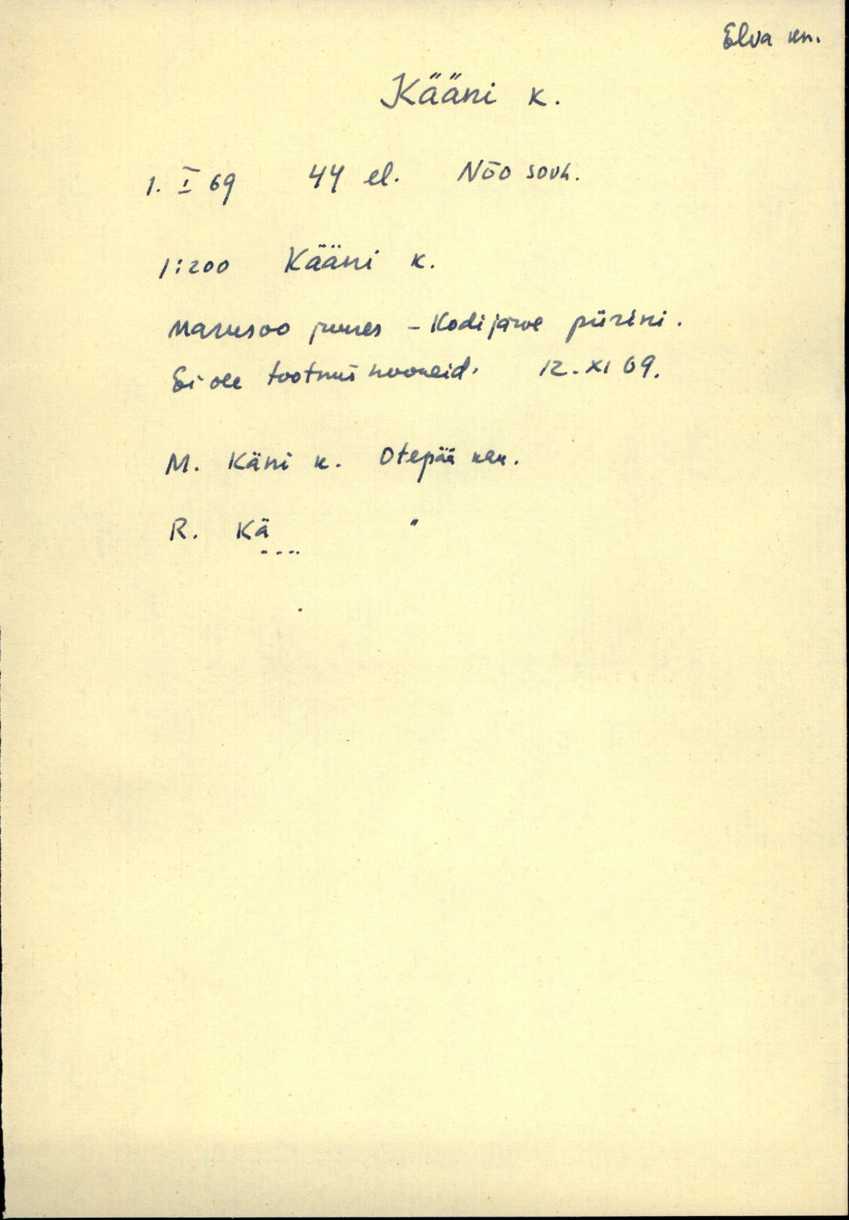 Elva kn.
Kääni k.
1. I 69 44 el. Nõo sovh.
1:200 Kääni k.
Marusoo juures - Kodijärve piirini.
Ei ole tootmishooneid. 12. XI 69.
M. Käni k. Otepää
R. Kä... "